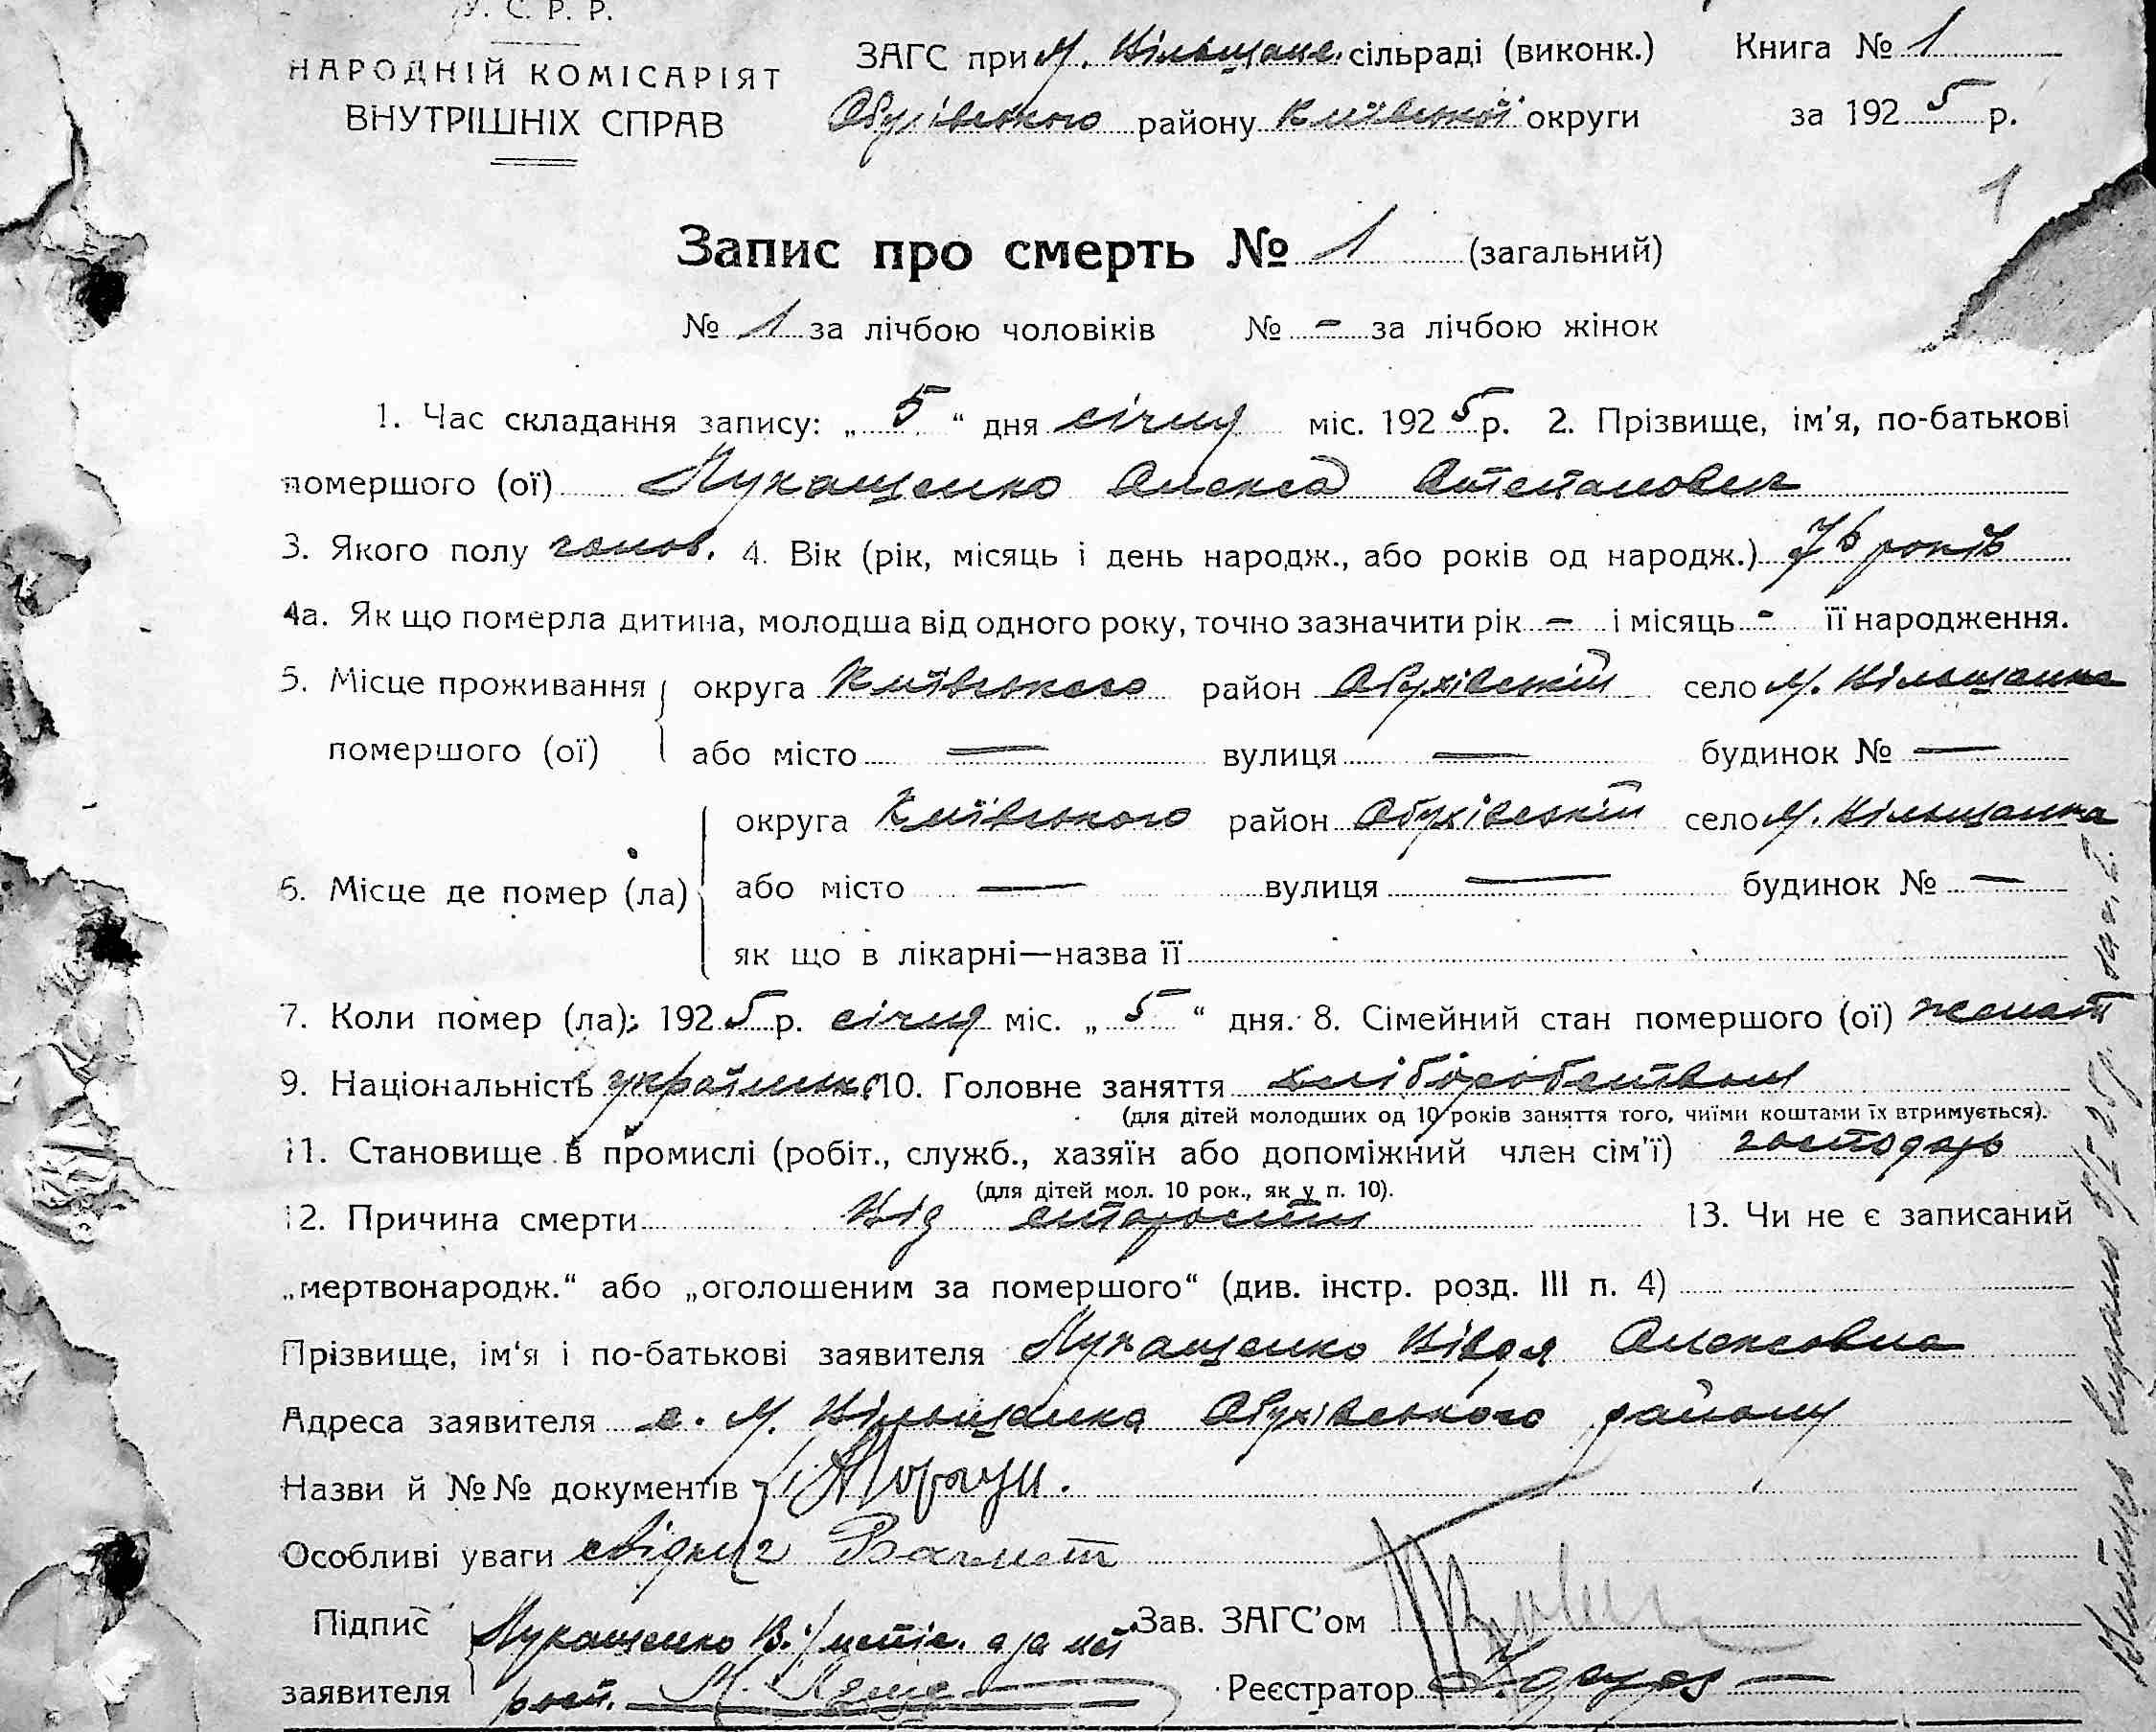 У. С. Р. Р.
НАРОДНІЙ КОМІСАРІЯТ
ВНУТРІШНІХ СПРАВ
ЗАГС при М. Вільщане. сільраді (виконк.)
Обухівського району Київської округи
Книга № 1
за 1925 р.
1
Запис про смерть № 1 (загальний)
№ 1 за лічбою чоловіків № – за лічбою жінок
1. Час складання запису: „5“ дня січня міс. 1925 р. 2. Прізвище, ім'я, по-батькові
помершого (ої) Лукащенко Алекса
3. Якого полу чолов. 4. Вік (рік, місяць і день народж., або років од народж.) 76 років
4а. Як що померла дитина, молодша від одного року, точно зазначити рік – і місяць - її народження.
5. Місце проживання округа Київського район Обухівській село М. Вільщанка
помершого (ої) або місто — вулиця — будинок № —
округа Київського район Обухівській село М. Вільщанка
6. Місце де помер (ла) або місто — вулиця — будинок № —
як що в лікарні—назва її
7. Коли помер (ла); 1925 р. січня міс. „5“ дня. 8. Сімейний стан помершого (ої) женат
9. Національність українець 10. Головне заняття хліборобством
(для дітей молодших од 10 років заняття того, чиїми коштами їх втримується).
11. Становище в промислі (робіт., служб., хазяїн або допоміжний член сім'ї) господарь
(для дітей мол. 10 рок., як у п. 10).
12. Причина смерти Від старости 13. Чи не є записаний
„мертвонародж.“ або „оголошеним за помершого“ (див. інстр. розд. III п. 4)
Прізвище, ім'я і по-батькові заявителя Лукащенко Вівдя Алексовна
Адреса заявителя с. М. Вільщанка Обухівського району
Назви й №№ документів
Особливі уваги
Підпис Лукащенко В.
заявителя
Зав. ЗАГС'ом
Реєстратор